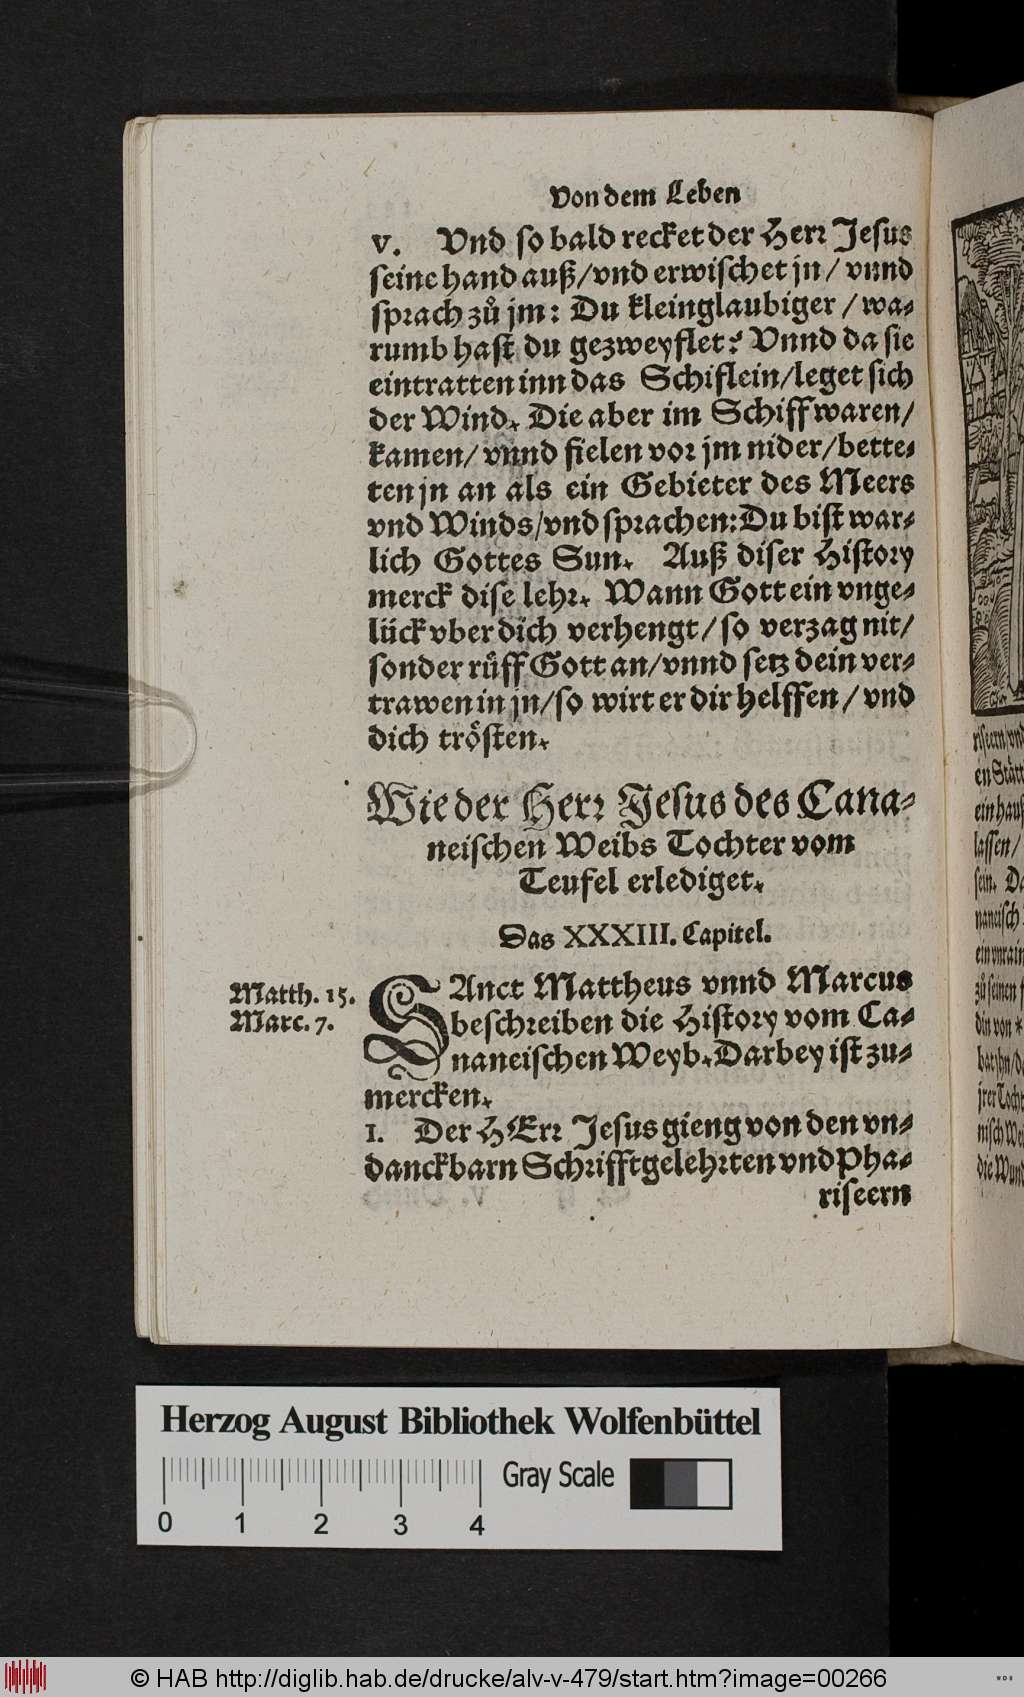 Von dem Leben
V. Vnd so bald recket der Herr Jesus
seine hand auß/vnd erwischet jn/ vnnd
sprach zů jm: Du kleinglaubiger / wa-
rumb hast du gezweyflet? Vnnd da sie
eintratten inn das Schiflein/leget sich
der Wind. Die aber im Schiff waren/
kamen/ vnnd fielen vor jm nider/bette-
ten jn an als ein Gebieter des Meers
vnd Winds/vnd sprachen: Du bist war-
lich Gottes Sun. Auß diser History
merck dise lehr. Wann Gott ein vnge-
lück vber dich verhengt/ so verzag nit/
sonder růff Gott an/vnnd setz dein ver-
trawen in jn/so wirt er dir helffen/ vnd
dich trösten.
Wie der Herr Jesus des Cana-
neischen Weibs Tochter vom
Teufel erlediget.
Das XXXIII. Capitel.
Matth. 15.
Marc. 7.
SAnct Mattheus vnnd Marcus
beschreiben die History vom Ca-
naneischen Weyb. Darbey ist zu-
mercken.
I. Der HErr Jesus gieng von den vn-
danckbarn Schrifftgelehrten vnd Pha-
riseern
riseern/vnd
en Stätt
ein hauß
lassen/
sein. Da
naneisch
ein vnrain
zů seinen f
din von
bat jhn/d
jrer Tocht
nisch We
die Wund
Herzog August Bibliothek Wolfenbüttel
Gray Scale
0 1 2 3 4
© HAB http://diglib.hab.de/drucke/alv-v-479/start.htm?image=00266